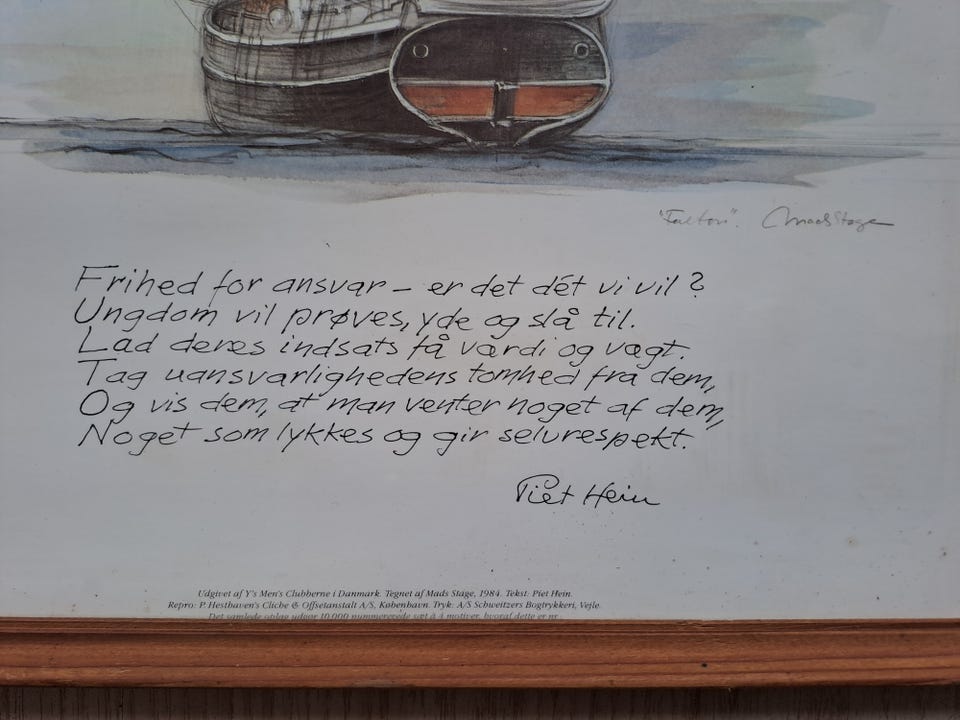 "Falton". Mads Stage
Frihed for ansvar – er det dét vi vil?
Ungdom vil prøves, yde og slå til.
Lad deres indsats få værdi og vægt.
Tag uansvarlighedens tomhed fra dem,
Og vis dem, at man venter noget af dem,
Noget som lykkes og gir selvrespekt.
Piet Hein
Udgivet af Y's Men's Clubberne i Danmark. Tegnet af Mads Stage, 1984. Tekst: Piet Hein.
Repro: P. Hesthaven's Cliche & Offsetanstalt A/S, København. Tryk: A/S Schweitzers Bogtrykkeri, Vejle.
Det samlede oplag udgør 10.000 nummererede sæt à 3 motiver, hvoraf dette er nr.